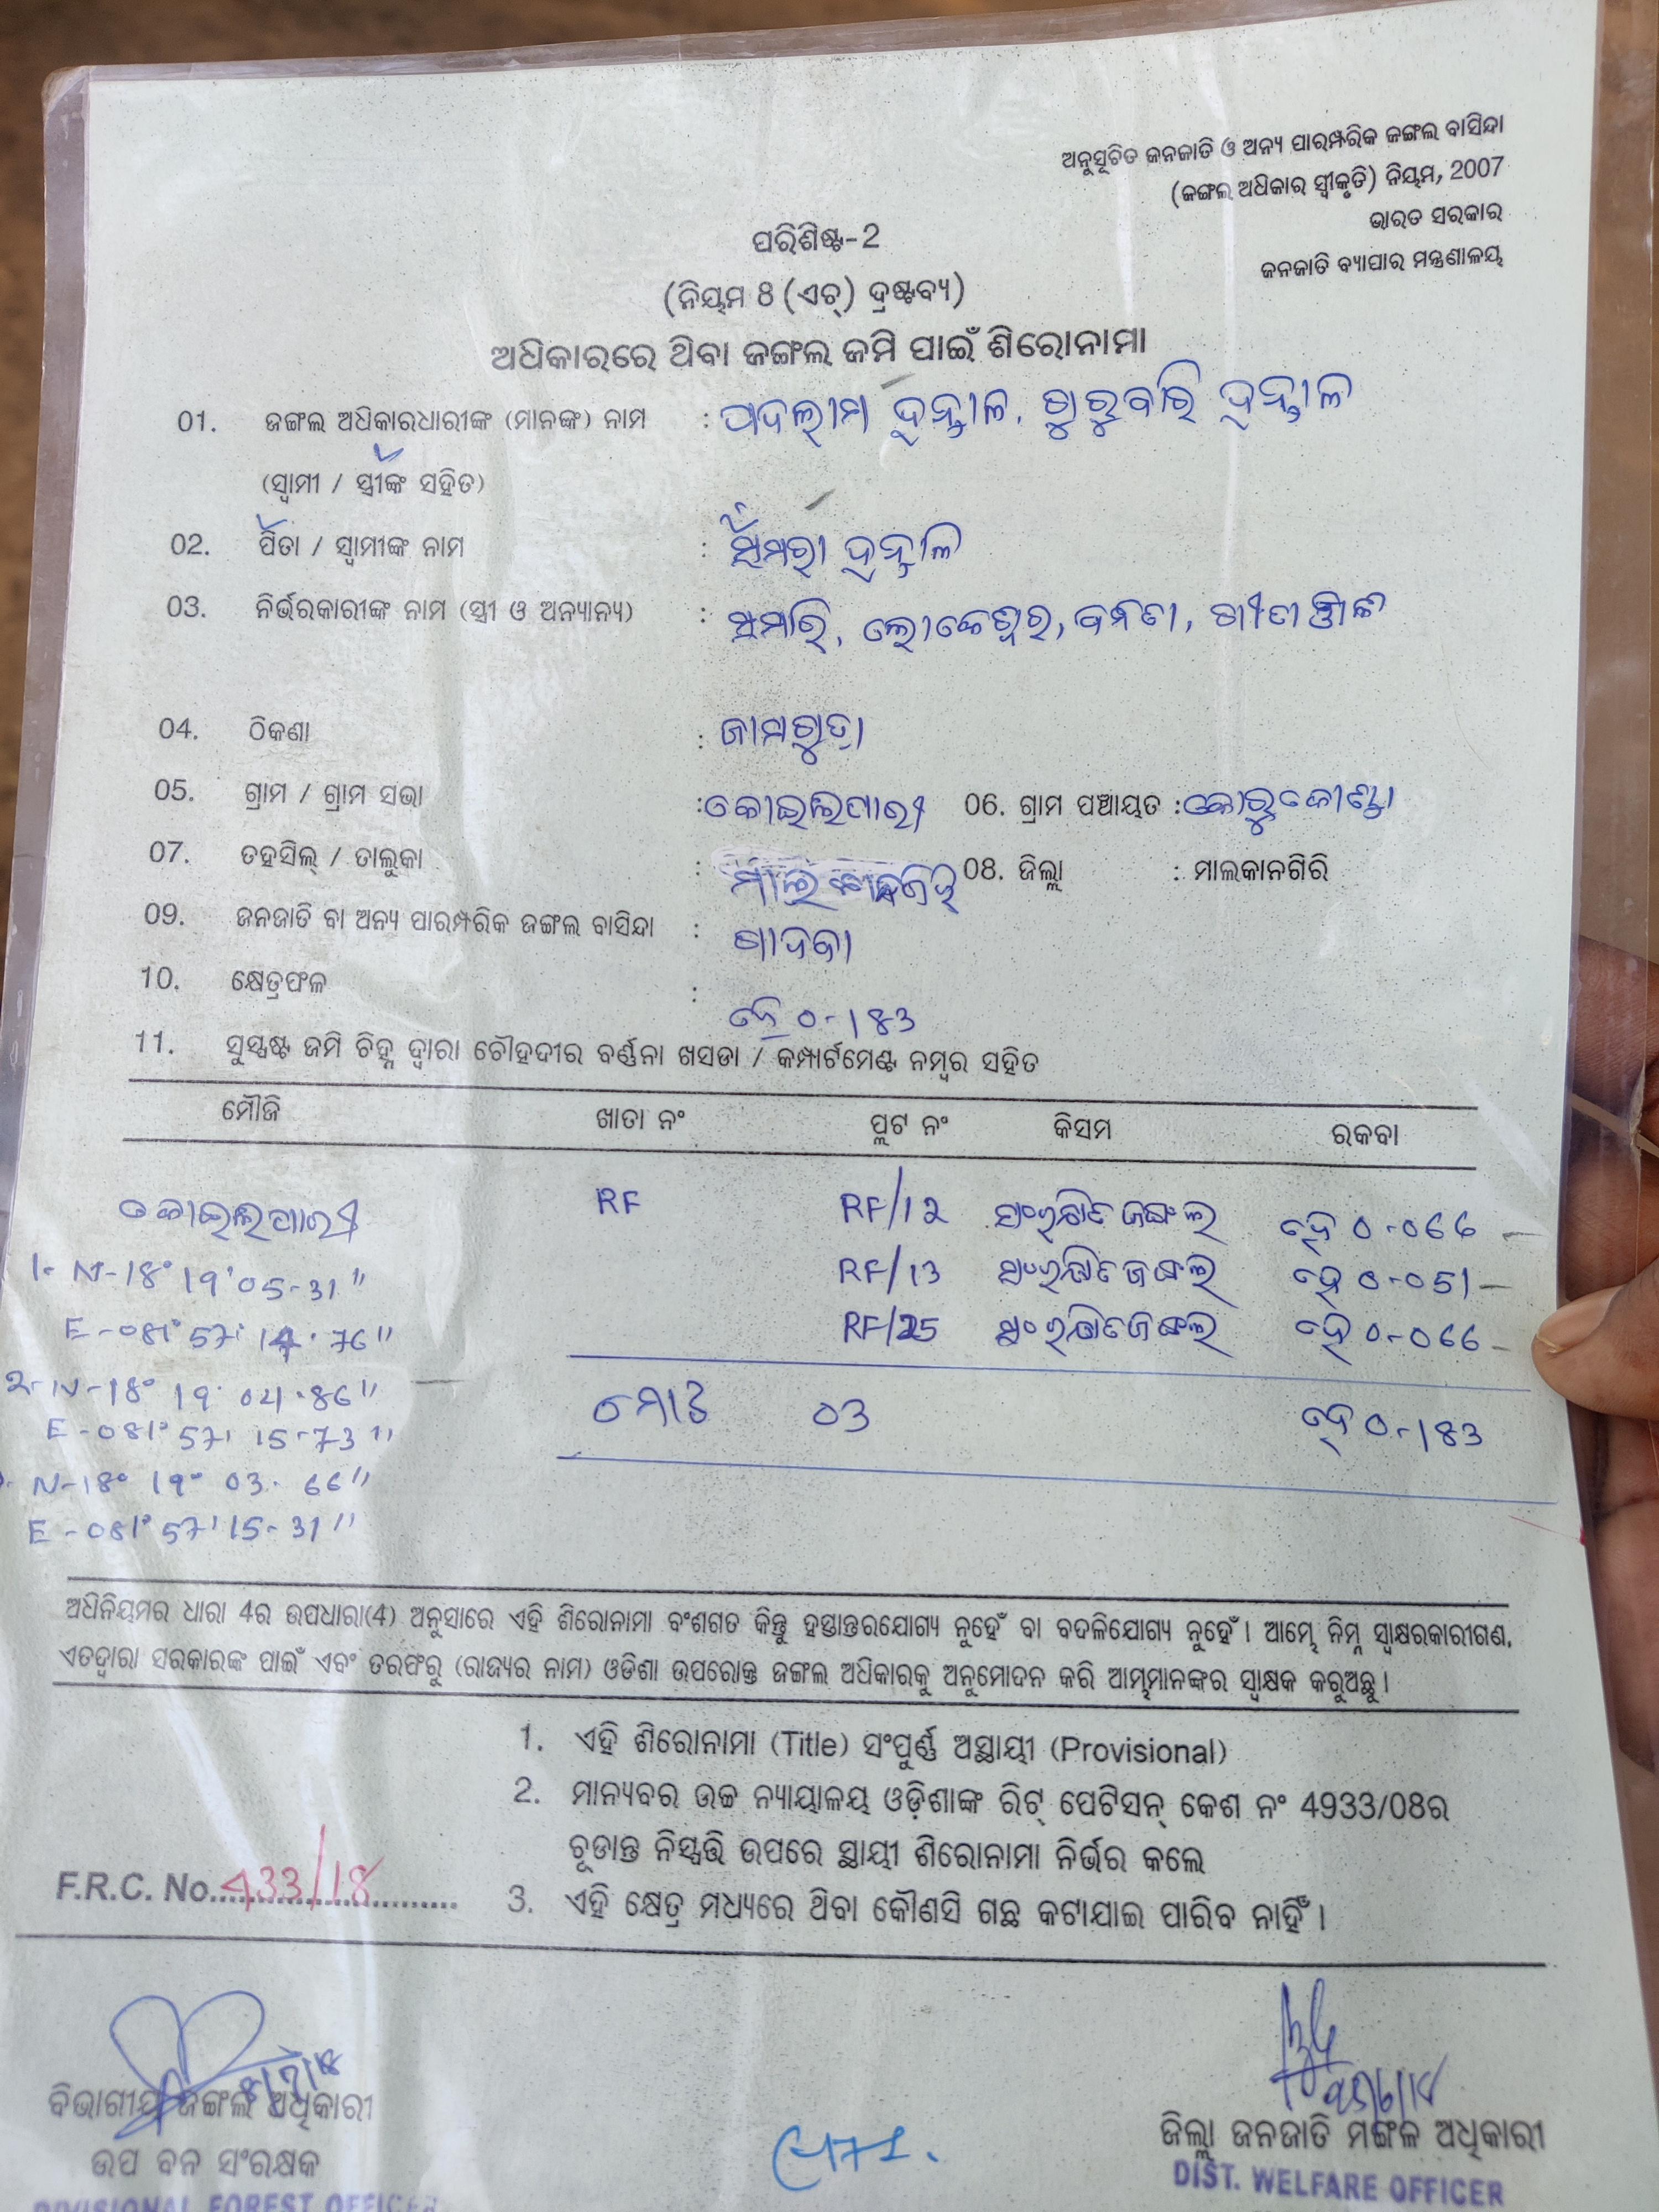 ଅନୁସୂଚିତ ଜନଜାତି ଓ ଅନ୍ୟ ପାରମ୍ପରିକ ଜଙ୍ଗଲ ବାସିନ୍ଦା
(ଜଙ୍ଗଲ ଅଧିକାର ସ୍ୱୀକୃତି) ନିୟମ, 2007
ଭାରତ ସରକାର
ଜନଜାତି ବ୍ୟାପାର ମନ୍ତ୍ରଣାଳୟ
ପରିଶିଷ୍ଟ-2
(ନିୟମ ୫ (ଏଚ୍) ଦ୍ରଷ୍ଟବ୍ୟ)
ଅଧିକାରରେ ଥିବା ଜଙ୍ଗଲ ଜମି ପାଇଁ ଶିରୋନାମା
01. ଜଙ୍ଗଲ ଅଧିକାରଧାରୀଙ୍କ (ମାନଙ୍କ) ନାମ : ପଦଲାମ ହନ୍ତାଳ, ଗୁରୁବାରି ହନ୍ତାଳ
(ସ୍ୱାମୀ / ସ୍ତ୍ରୀଙ୍କ ସହିତ)
02. ପିତା / ସ୍ୱାମୀଙ୍କ ନାମ : ହନ୍ତାଳ
03. ନିର୍ଭରକାରୀଙ୍କ ନାମ (ସ୍ତ୍ରୀ ଓ ଅନ୍ୟାନ୍ୟ) : ସମାରି, ଲୋକେଶ୍ୱର,
04. ଠିକଣା : ଜାମଗୁଡା
05. ଗ୍ରାମ / ଗ୍ରାମ ସଭା : କୋଇଲିପାରୀ 06. ଗ୍ରାମ ପଞ୍ଚାୟତ : କୋରୁକୋଣ୍ଡା
07. ତହସିଲ୍ / ତାଲୁକା : 08. ଜିଲ୍ଲା : ମାଲକାନଗିରି
09. ଜନଜାତି ବା ଅନ୍ୟ ପାରମ୍ପରିକ ଜଙ୍ଗଲ ବାସିନ୍ଦା : ଗାଦବା
10. କ୍ଷେତ୍ରଫଳ : ହେ ୦-183
11. ସୁସ୍ପଷ୍ଟ ଜମି ଚିହ୍ନ ଦ୍ୱାରା ଚୌହଦୀର ବର୍ଣ୍ଣନା ଖସଡା / କମ୍ପାର୍ଟମେଣ୍ଟ ନମ୍ବର ସହିତ
ମୌଜି ଖାତା ନଂ ପ୍ଲଟ ନଂ କିସମ ରକବା
କୋଇଲିପାରୀ RF RF/12 ସଂରକ୍ଷିତ ଜଙ୍ଗଲ ହେ 0-066
1. N-18° 19' 05-31" RF/13 ସଂରକ୍ଷିତ ଜଙ୍ଗଲ ହେ 0-051
E-081° 57' 14.76" RF/25 ସଂରକ୍ଷିତ ଜଙ୍ଗଲ ହେ 0-066
2. N-18° 19' 04.86" ମୋଟ 03 ହେ 0-183
E-081° 57' 15-73"
N-18° 19° 03. 66"
E-081° 57' 15-31"
ଅଧିନିୟମର ଧାରା 4ର ଉପଧାରା(4) ଅନୁସାରେ ଏହି ଶିରୋନାମା ବଂଶଗତ କିନ୍ତୁ ହସ୍ତାନ୍ତରଯୋଗ୍ୟ ନୁହେଁ ବା ବଦଳିଯୋଗ୍ୟ ନୁହେଁ। ଆମ୍ଭେ ନିମ୍ନ ସ୍ୱାକ୍ଷରକାରୀଗଣ,
ଏତଦ୍ୱାରା ସରକାରଙ୍କ ପାଇଁ ଏବଂ ତରଫରୁ (ରାଜ୍ୟର ନାମ) ଓଡିଶା ଉପରୋକ୍ତ ଜଙ୍ଗଲ ଅଧିକାରକୁ ଅନୁମୋଦନ କରି ଆମ୍ଭମାନଙ୍କର ସ୍ୱାକ୍ଷକ କରୁଅଛୁ।
1. ଏହି ଶିରୋନାମା (Title) ସଂପୂର୍ଣ୍ଣ ଅସ୍ଥାୟୀ (Provisional)
2. ମାନ୍ୟବର ଉଚ୍ଚ ନ୍ୟାୟାଳୟ ଓଡ଼ିଶାଙ୍କ ରିଟ୍ ପେଟିସନ୍ କେଶ ନଂ 4933/08ର
ଚୂଡାନ୍ତ ନିସ୍ପତ୍ତି ଉପରେ ସ୍ଥାୟୀ ଶିରୋନାମା ନିର୍ଭର କଲେ
F.R.C. No. 433/18
3. ଏହି କ୍ଷେତ୍ର ମଧ୍ୟରେ ଥିବା କୌଣସି ଗଛ କଟାଯାଇ ପାରିବ ନାହିଁ।
ବିଭାଗୀୟ ଜଙ୍ଗଲ ଅଧିକାରୀ
ଉପ ବନ ସଂରକ୍ଷକ
DIVISIONAL FOREST OFFICER
ଜିଲ୍ଲା ଜନଜାତି ମଙ୍ଗଳ ଅଧିକାରୀ
DIST. WELFARE OFFICER